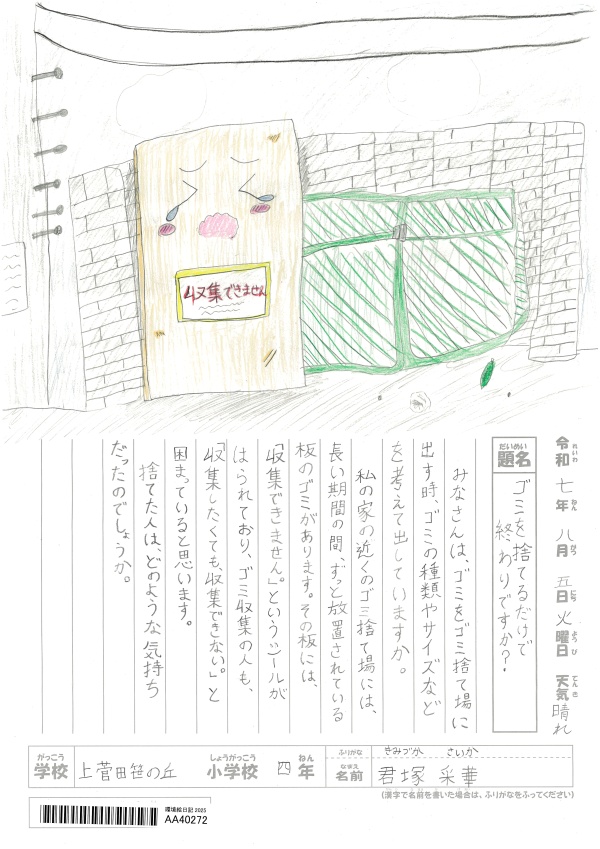 収集できません
令和 七年 八月 五日 火曜日 天気 晴れ
れいわ ねん がつ にち ようび てんき
だいめい
題名
ゴミを捨てるだけで
終わりですか？
みなさんは、ゴミをゴミ捨て場に
出す時、ゴミの種類やサイズなど
を考えて出していますか。
私の家の近くのゴミ捨て場には、
長い期間の間、ずっと放置されている
板のゴミがあります。その板には、
「収集できません。」というシールが
はられており、ゴミ収集の人も、
「収集したくても、収集できない。」と
困まっていると思います。
捨てた人は、どのような気持ち
だったのでしょうか。
がっこう しょうがっこう ねん ふりがな きみづか さいか
学校 上菅田笹の丘 小学校 四年
なまえ
名前 君塚 采華
(漢字で名前を書いた場合は、ふりがなをふってください)
環境絵日記 2025
AA40272